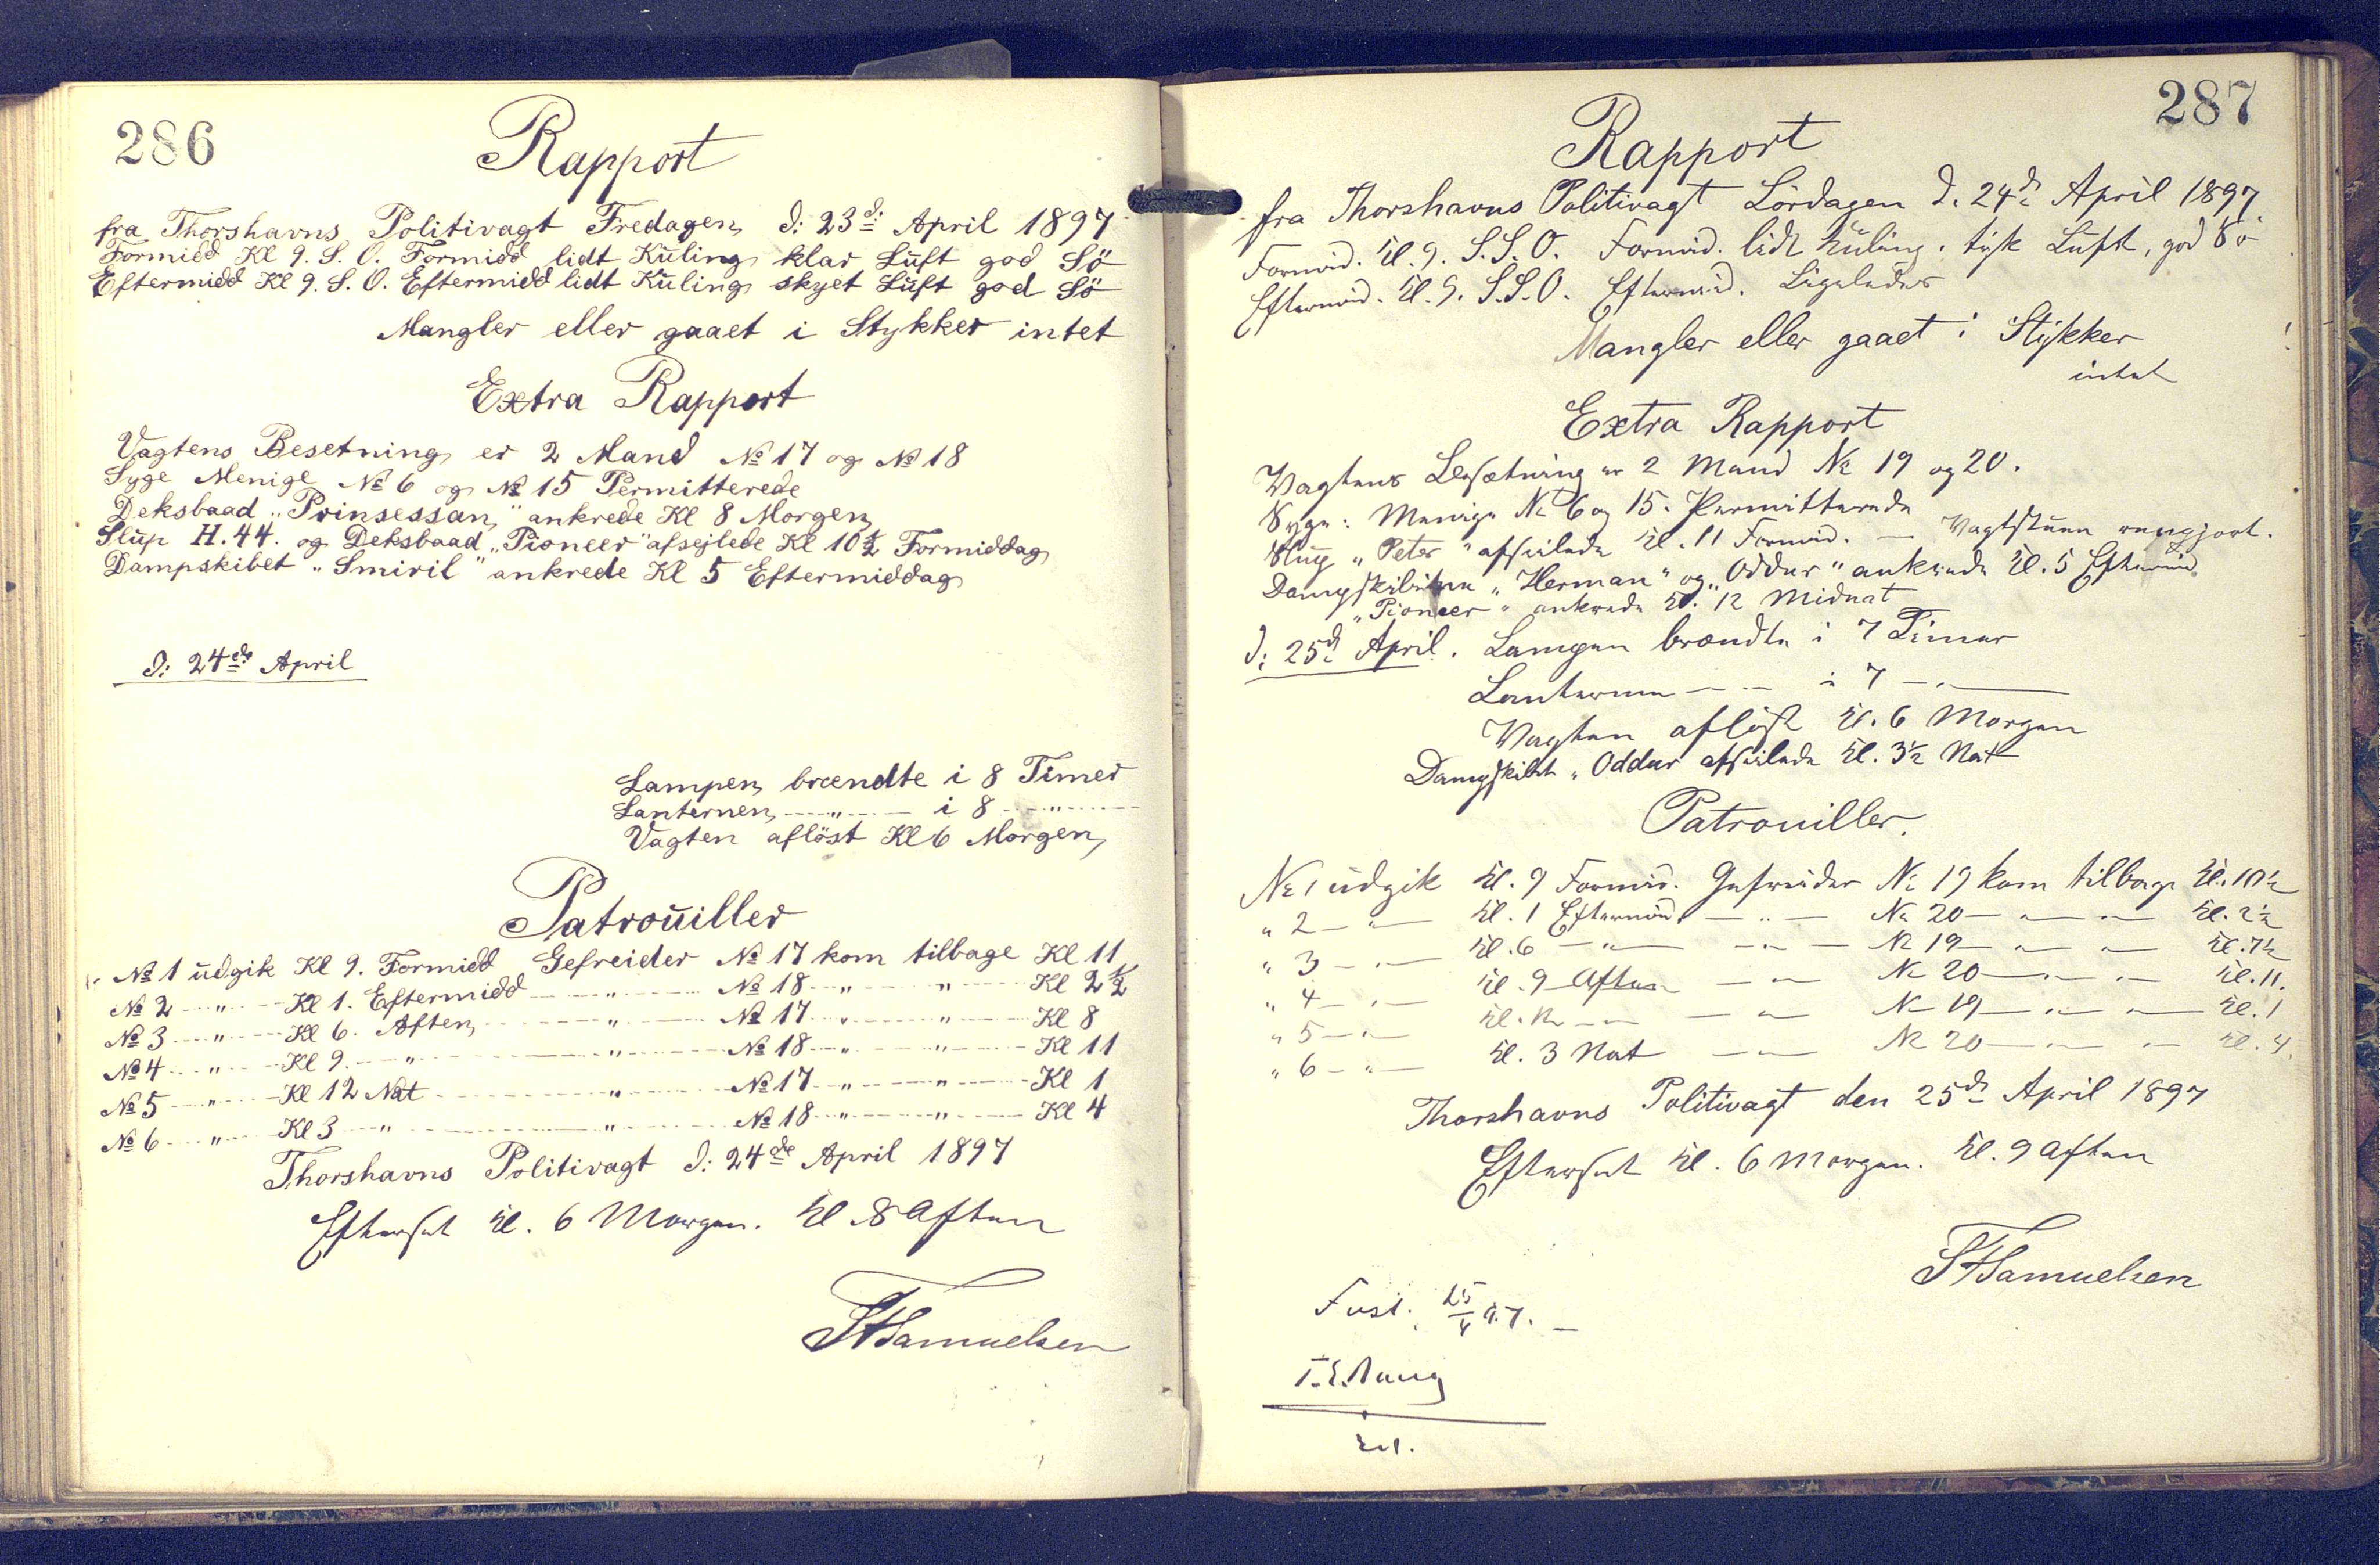 286
Rapport
fra Thorshavns Politivagt Fredagen d: 23d: April 1897.
Formidd Kl 9. S. O. Formidd lidt Kuling klar Luft god Sö
Eftermidd Kl 9. S. O. Eftermidd lidt Kuling skyet Luft god Sö
Mangler eller gaaet i Stykker intet
Extra Rapport
Vagtens Besetning er 2 Mand No 17 og No 18
Syge Menige No 6 og No 15 Permitterede
Deksbaad „Prinsessan" ankrede Kl 8 Morgen
Slup H. 44. og Deksbaad „Pioneer" afsejlede Kl 10½ Formiddag
Dampskibet „Smiril" ankrede Kl 5 Eftermiddag
d: 24de April
Lampen brændte i 8 Timer
Lanternen — " — i 8 — " —
Vagten aflöst Kl 6 Morgen
Patrouiller
No 1 udgik Kl 9. Formidd Gefreider No 17 kom tilbage Kl 11
No 2 — " — Kl 1. Eftermidd — " — No 18 — " — " — Kl 2½
No 3 — " — Kl 6. Aften — " — No 17 — " — " — Kl 8
No 4 — " — Kl 9. — " — " — No 18 — " — " — Kl 11
No 5 — " — Kl 12 Nat — " — No 17 — " — " — Kl 1
No 6 — " — Kl 3 — " — " — No 18 — " — " — Kl 4
Thorshavns Politivagt d: 24de April 1897
Efterset Kl. 6 Morgen. Kl 8 Aften
Samuelsen
287
Rapport
fra Thorshavns Politivagt Lördagen d. 24d April 1897.
Formid. Kl. 9. S. S. O. Formid. lidt Kuling. tyk Luft, god Sö
Eftermid. Kl. 9. S. S. O. Eftermid. Ligeledes
Mangler eller gaaet i Stykker
intet
Extra Rapport
Vagtens Besætning er 2 Mand No 19 og 20.
Syge: Menige No 6 og 15. Permitterede
Slup „Peter" afseilede Kl. 11 Formid. — Vagtstuen rengjort.
Dampskibene „Herman" og „Oddur" ankrede Kl. 5 Eftermid
„Pioneer" ankrede Kl. 12 Midnat
d: 25d April. Lampen brændte i 7 Timer
Lanternen — " — i 7 — " —
Vagten aflöst Kl. 6 Morgen
Dampskibet „Oddur afseilede Kl. 3½ Nat
Patrouiller.
No 1 udgik Kl. 9 Formid. Gefreider No 19 kom tilbage Kl. 10½
" 2 — " — Kl. 1 Eftermid — " — No 20 — " — " — Kl. 2½
" 3 — " — Kl. 6 — " — — " — No 19 — " — " — Kl. 7½
" 4 — " — Kl. 9 Aften — " — No 20 — " — " — Kl. 11.
" 5 — " — Kl. 12 — " — — " — No 19 — " — " — Kl. 1
" 6 — " — Kl. 3 Nat — " — No 20 — " — " — Kl. 4.
Thorshavns Politivagt den 25d April 1897
Efterset Kl. 6 Morgen. Kl. 9 Aften
Samuelsen
25/4 97. —